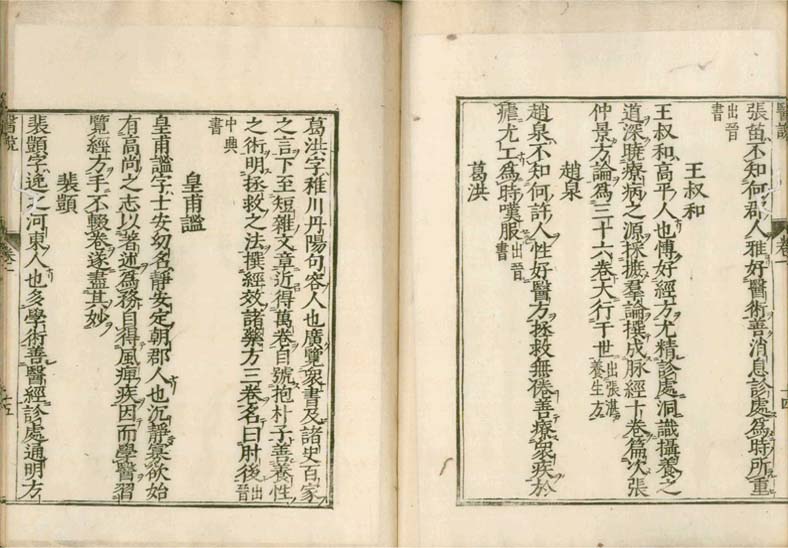 醫說 卷一 十四
張苗不知何郡人雅好醫術善消息診處爲時所重
出晉書
王叔和
王叔和高平人也博好經方尤精診處洞識攝養之
道深曉療病之源採摭羣論撰成脉經十卷篇次張
仲景方論爲三十六卷大行于世出張湛養生方
趙泉
趙泉不知何許人性好醫方拯救無倦善療衆疾於
瘧尤工爲時嘆服出晉書
葛洪
葛洪字稚川丹陽句容人也廣覽衆書及諸史百家
之言下至短雜文章近得萬卷自號抱朴子善養性
之術明拯救之法撰經效諸藥方三卷名曰肘後出晉
中典書
皇甫謐
皇甫謐字士安幼名靜安定朝郡人也沉靜寡欲始
有高尚之志以著述爲務自得風痺疾因而學醫習
覽經方手不輟卷遂盡其妙
裴頠
裴頠字逸之河東人也多學術善醫經診處通明方
醫說 卷一 十五